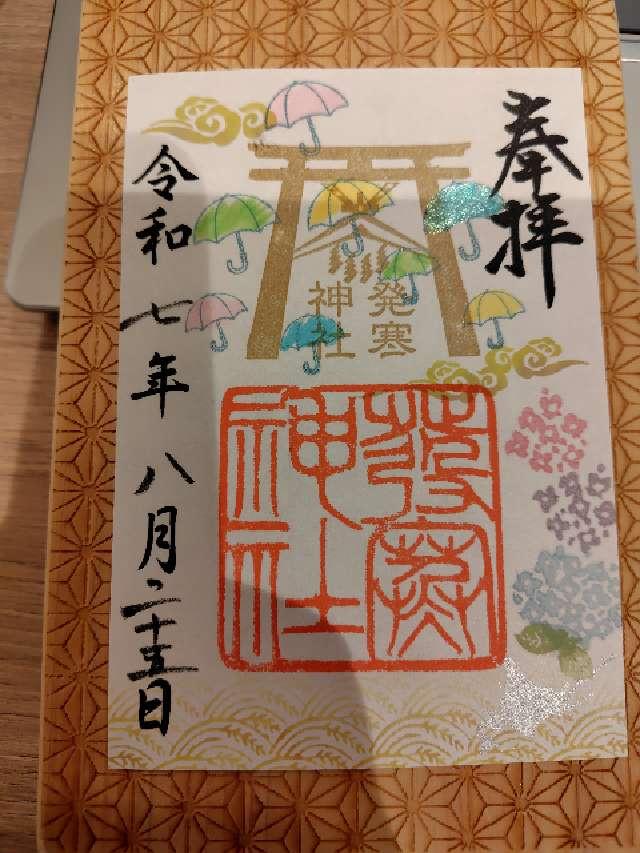 奉拝
発寒
神社
發寒
神社
令和七年八月二十五日